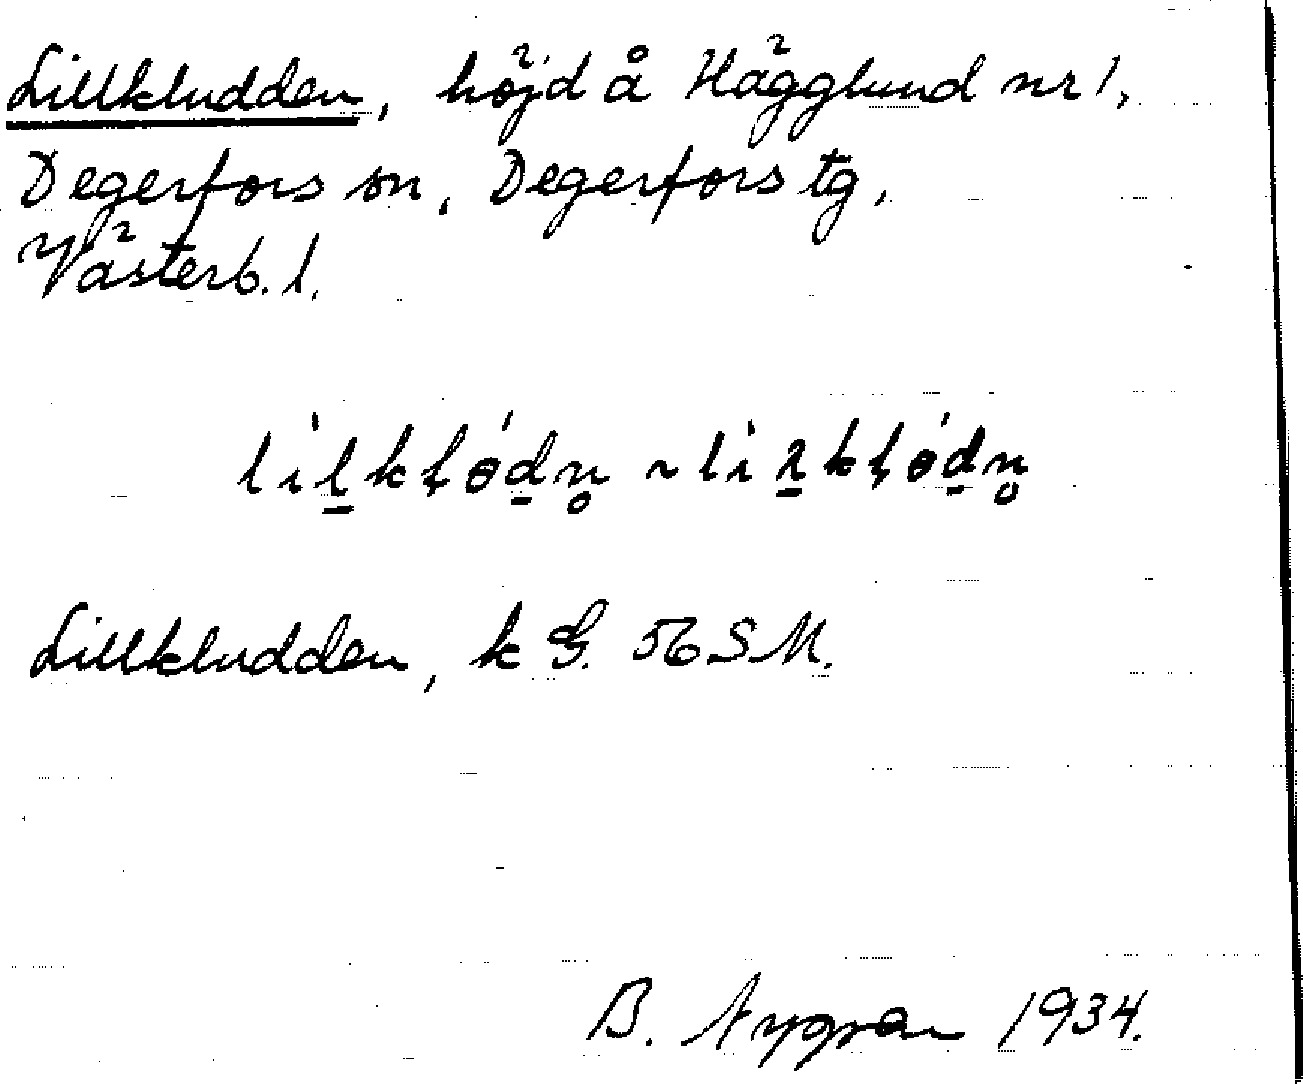 Lillkludden, höjd å Hägglund nr 1,
Degerfors sn, Degerfors tg,
Västerb. l.
Lillkludden, k G. 56 SM.
B. Nygren 1934.